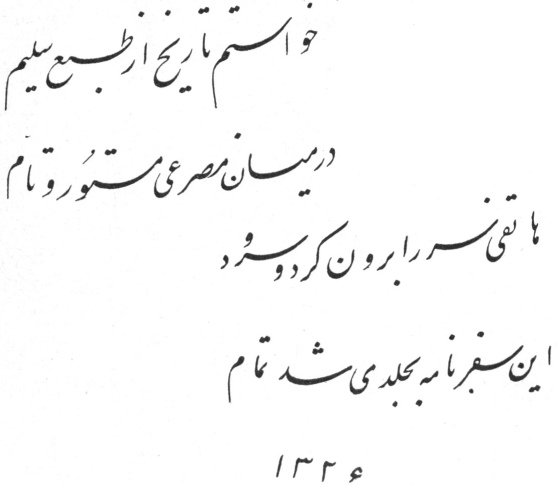 خواستم تاریخ از طبع سلیم
درمیان مصرعی مستور و تام
هاتفی سر را برون کرد و سرود
این سفرنامه بجلدی شد تمام
۱۳۲۶